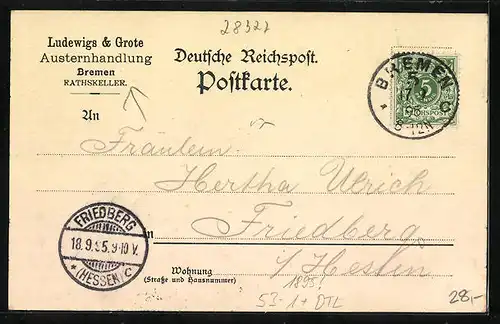 28322
Ludewigs & Grote
Austernhandlung
Bremen
RATHSKELLER.
Deutsche Reichspost.
Postkarte.
BREMEN
5
REICHSPOST
C
An
Fräulein
Hertha Ulrich
in Friedberg
i/Hessen
FRIEDBERG
18.9.95.9-10 V.
* (HESSEN) C
Wohnung
(Straße und Hausnummer)
1895
53-1+DTL
28,-